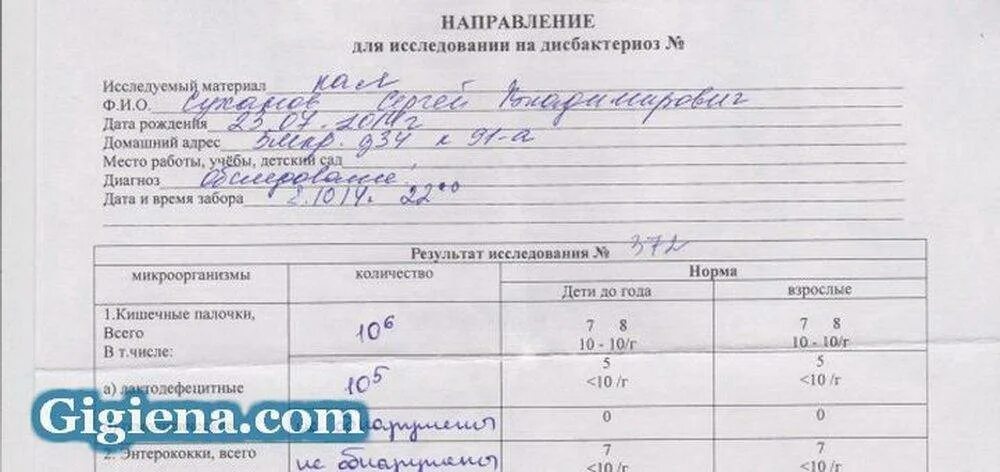 НАПРАВЛЕНИЕ
для исследовании на дисбактериоз №
Исследуемый материал кал
Ф.И.О. Суханов Сергей Владимирович
Дата рождения 23.07.2014г
Домашний адрес 5мкр. д34 к 91-а
Место работы, учёбы, детский сад
Диагноз обследование
Дата и время забора 2.10.14г. 22⁰⁰
Результат исследования № 372
микроорганизмы количество Норма
Дети до года взрослые
1.Кишечные палочки,
Всего
В т.числе:
10⁶
7 8
10 - 10/г
7 8
10 - 10/г
а) лактодефецитные 10⁵
5
<10 /г
5
<10 /г
Gigiena.com
обнаружены 0 0
2. Энтерококки, всего не обнаружены
7
<10 /г
7
<10 /г